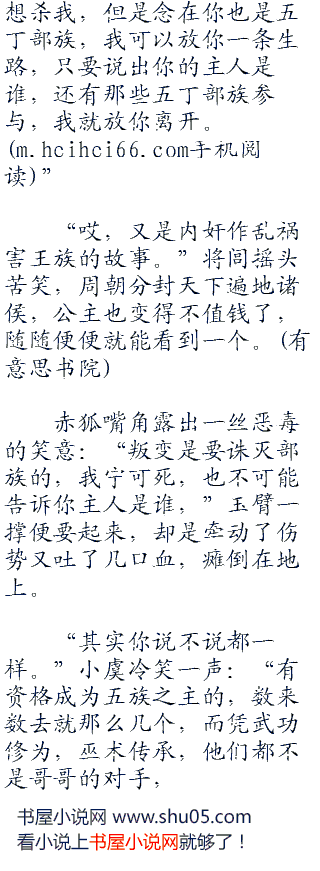 想杀我，但是念在你也是五
丁部族，我可以放你一条生
路，只要说出你的主人是
谁，还有那些五丁部族参
与，我就放你离开。
(m.hcihci66.com手机阅
读)”
“哎，又是内奸作乱祸
害王族的故事。”将闾摇头
苦笑，周朝分封天下遍地诸
侯，公主也变得不值钱了，
随随便便就能看到一个。(有
意思书院)
赤狐嘴角露出一丝恶毒
的笑意：“叛变是要诛灭部
族的，我宁可死，也不可能
告诉你主人是谁，”玉臂一
撑便要起来，却是牵动了伤
势又吐了几口血，瘫倒在地
上。
“其实你说不说都一
样。”小虞冷笑一声：“有
资格成为五族之主的，数来
数去就那么几个，而凭武功
修为，巫术传承，他们都不
是哥哥的对手，
书屋小说网 www.shu05.com
看小说上书屋小说网就够了！